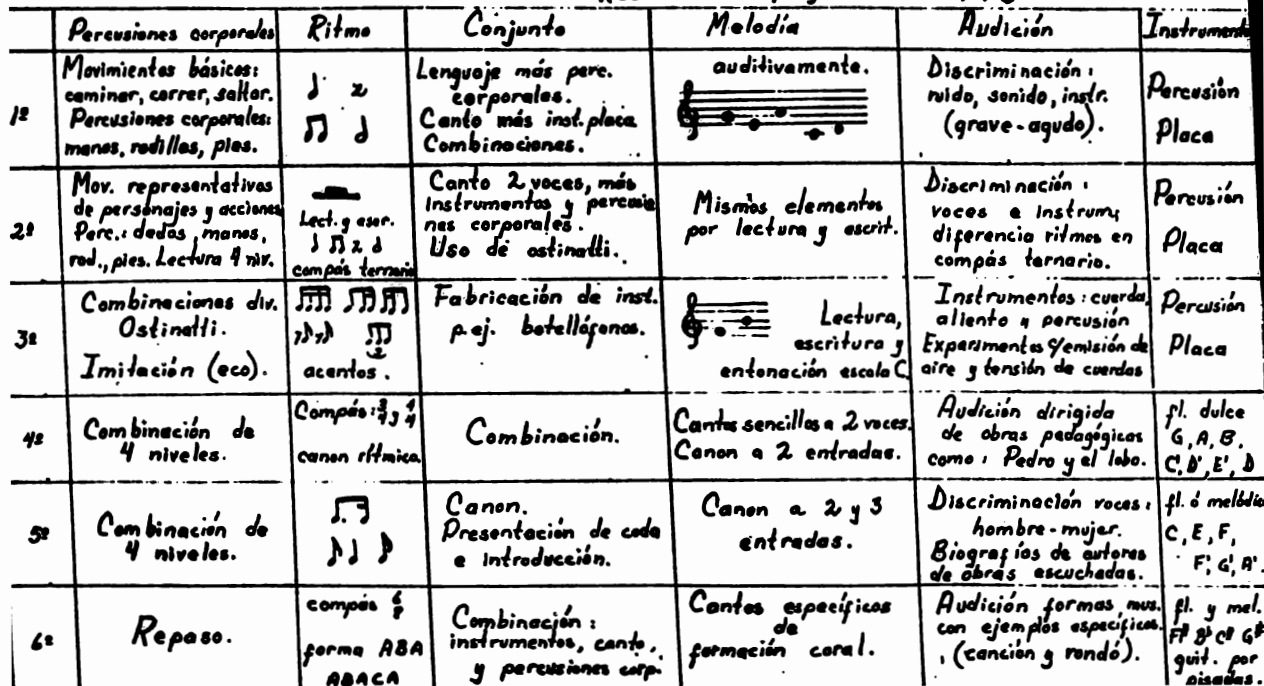 Percusiones corporales
Ritmo
Conjunto
Melodía
Audición
1º
Movimientos básicos:
caminar, correr, saltar.
Percusiones corporales:
manos, rodillas, pies.
Lenguaje más perc.
corporales.
Canto más inst. placa
Combinaciones.
auditivamente.
Discriminación:
ruido, sonido, instr.
(grave-agudo).
Percusión
Placa
2º
Mov. representativos
de personajes y acciones
Perc.: dedos, manos,
rod., pies. Lectura 4 niv.
Lect. y escr.
compás ternario
Canto 2 voces, más
instrumentos y percusio
nes corporales.
Uso de ostinatti.
Mismos elementos
por lectura y escrit.
Discriminación:
voces e instrum;
diferencia ritmos en
compás ternario.
Percusión
Placa
3º
Combinaciones div.
Ostinatti.
Imitación (eco).
acentos.
Fabricación de inst.
p.ej. botellófonos.
Lectura,
escritura y
entonación escala C.
Instrumentos: cuerda,
aliento y percusión
Experimentos c/emisión de
aire y tensión de cuerdas
Percusión
Placa
4º
Combinación de
4 niveles.
Compás: 3/4 y 4/4
canon rítmico.
Combinación.
Cantos sencillos a 2 voces.
Canon a 2 entradas.
Audición dirigida
de obras pedagógicas
como: Pedro y el lobo.
fl. dulce
G, A, B,
C', D', E', D
5º
Combinación de
4 niveles.
Canon.
Presentación de coda
e introducción.
Canon a 2 y 3
entradas.
Discriminación voces:
hombre-mujer.
Biografías de autores
de obras escuchadas.
fl. ó melódica
C, E, F,
F', G', A'.
6º
Repaso.
compás 6/8
forma ABA
ABACA
Combinación:
instrumentos, canto,
y percusiones corp.
Cantos específicos
de
formación coral.
Audición formas mus.
con ejemplos específicos.
(canción y rondó).
fl. y mel.
F# Bb C# G#
guit. por
pisadas.